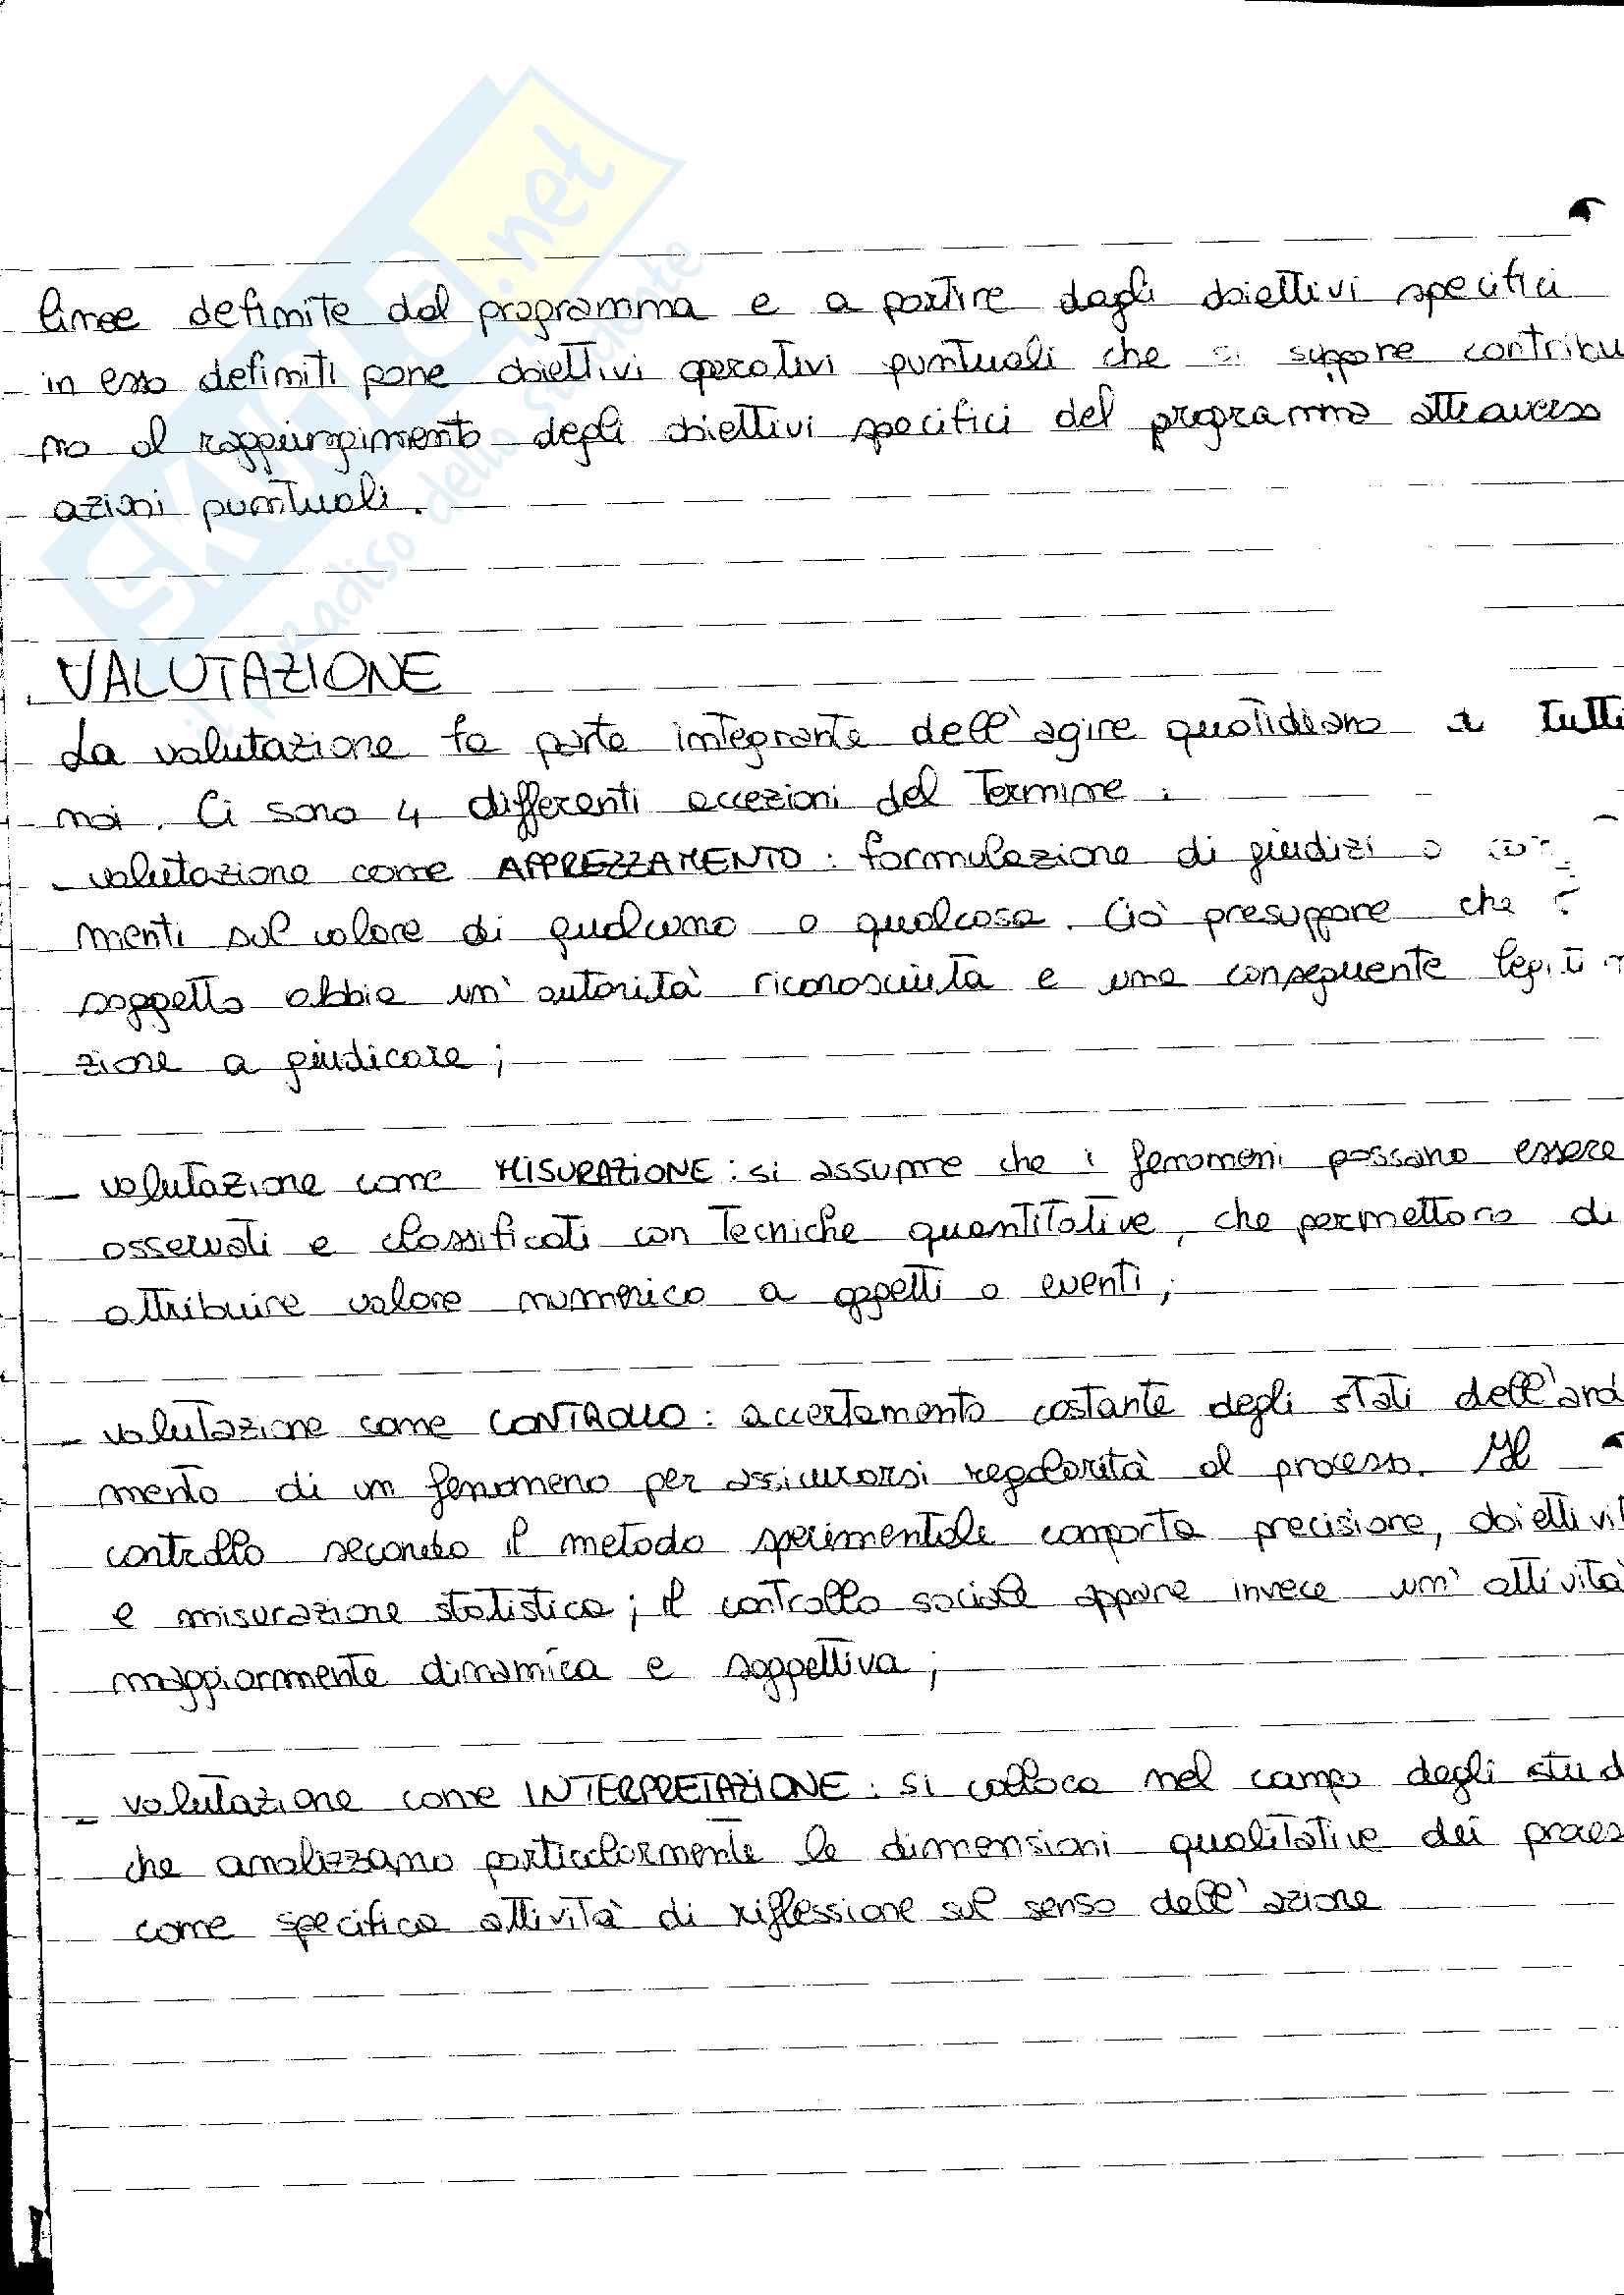 SKUOLA.net
il paradiso dello studente
linee definite dal programma e a partire dagli obiettivi specifici
in esso definiti pone obiettivi operativi puntuali che si suppone contribu
no al raggiungimento degli obiettivi specifici del programma attraverso
azioni puntuali.
VALUTAZIONE
La valutazione fa parte integrante dell'agire quotidiano tutti
noi. Ci sono 4 differenti accezioni del termine:
- valutazione come APPREZZAMENTO: formulazione di giudizi o
menti sul valore di qualcuno o qualcosa. Ciò presuppone che
soggetto abbia un'autorità riconosciuta e una conseguente legitim
zione a giudicare;
- valutazione come MISURAZIONE: si assume che i fenomeni possano essere
osservati e classificati con tecniche quantitative, che permettono di
attribuire valore numerico a oggetti o eventi;
- valutazione come CONTROLLO: accertamento costante degli stati dell'anda
mento di un fenomeno per assicurarsi regolarità al processo. Il
controllo secondo il metodo sperimentale comporta precisione, obiettivit
e misurazione statistica; il controllo sociale appare invece un'attività
maggiormente dinamica e soggettiva;
- valutazione come INTERPRETAZIONE: si colloca nel campo degli stud
che analizzano particolarmente le dimensioni qualitative dei proces
come specifica attività di riflessione sul senso dell'azione